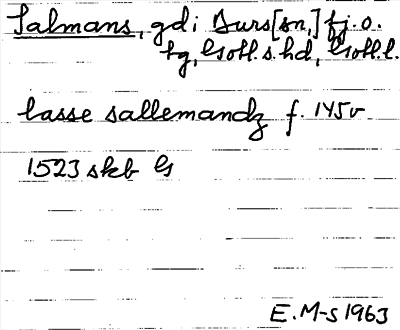 Salmans, gd i Burs[sn,] fj.o.
fg, Gotl.s.hd, Gotl.l.
lasse sallemandz f. 145v
1523 skb G
E. M-s 1963